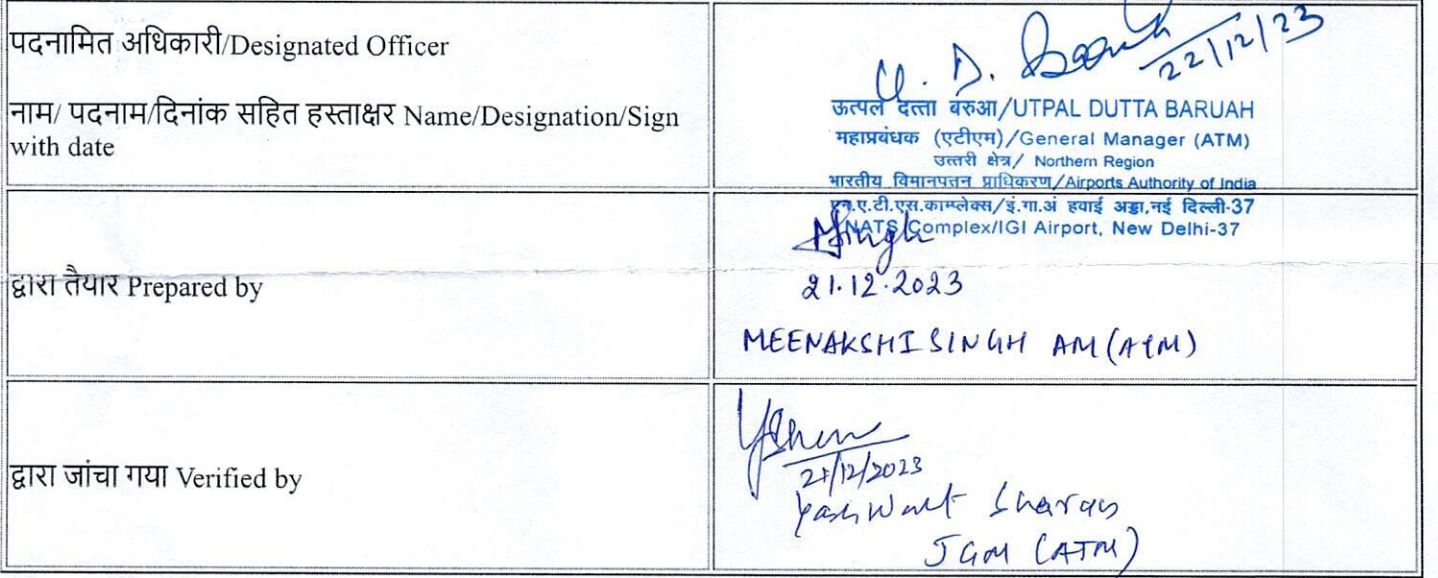 पदनामित अधिकारी/Designated Officer
नाम/ पदनाम/दिनांक सहित हस्ताक्षर Name/Designation/Sign
with date
U. D. Baruah
22/12/23
ऊत्पल दत्ता बरुआ/UTPAL DUTTA BARUAH
महाप्रबंधक (एटीएम)/General Manager (ATM)
उत्तरी क्षेत्र/ Northern Region
भारतीय विमानपत्तन प्राधिकरण/Airports Authority of India
एन.ए.टी.एस.काम्प्लेक्स/इं.गा.अं हवाई अड्डा,नई दिल्ली-37
NATS Complex/IGI Airport, New Delhi-37
द्वारा तैयार Prepared by
MSingh
21.12.2023
MEENAKSHI SINGH AM (ATM)
द्वारा जांचा गया Verified by
21/12/2023
Yashwant Sharan
JGM (ATM)